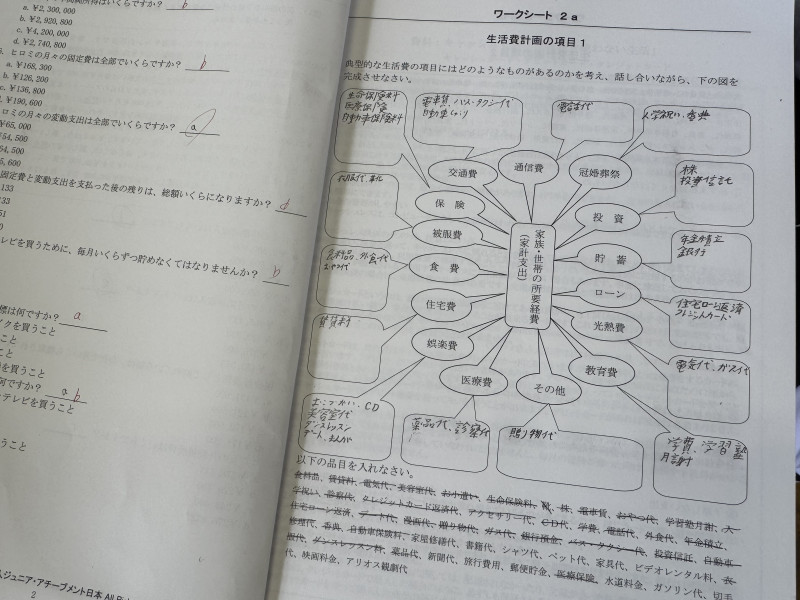 a. ¥2,300,000
b. ¥2,920,800
c. ¥4,200,000
d. ¥2,740,800
b
ヒロミの月々の固定費は全部でいくらですか? b
a. ¥168,300
b. ¥126,200
¥136,800
¥190,600
ロミの月々の変動支出は全部でいくらですか? a
¥65,000
固定費と変動支出を支払った後の残りは、総額いくらになりますか? d
レビを買うために、毎月いくらずつ貯めなくてはなりませんか? b
標は何ですか? a
イクを買うこと
こと
こと
を買うこと
何ですか? a b
テレビを買うこと
うこと
ジュニア・アチーブメント日本
2
ワークシート 2a
生活費計画の項目1
典型的な生活費の項目にはどのようなものがあるのかを考え、話し合いながら、下の図を
完成させなさい。
生命保険料
医療保険
自動車保険料
電車賃、バス・タクシー代
電話代
入学祝い、香典
交通費
通信費
冠婚葬祭
株
投資信託
保険
投資
被服費
年金積立
銀行
貯蓄
食費
家族・世帯の所要経費
(家計支出)
ローン
住宅ローン返済
クレジットカード
住宅費
光熱費
電気代、ガス代
賃貸料
娯楽費
教育費
医療費
その他
おこづかい、CD
美容室代
ダンスレッスン
デート、まんが
薬品代、診察代
贈り物代
学費、学習塾
月謝
以下の品目を入れなさい。
食料品、賃貸料、電気代、美容室代、お小遣い、生命保険料、靴、株、電車賃、おやつ代、学習塾月謝、入
学祝い、診察代、クレジットカード返済代、アクセサリー代、CD代、学費、電話代、外食代、年金積立、
住宅ローン返済、デート代、漫画代、贈り物代、ガス代、銀行預金、バス・タクシー代、投資信託、自動車
修理代、香典、自動車保険料、家屋修繕代、書籍代、シャツ代、ペット代、家具代、ビデオレンタル料、衣
服代、ダンスレッスン料、薬品代、新聞代、旅行費用、郵便貯金、医療保険、水道料金、ガソリン代、切手
代、映画料金、アリオス観劇代